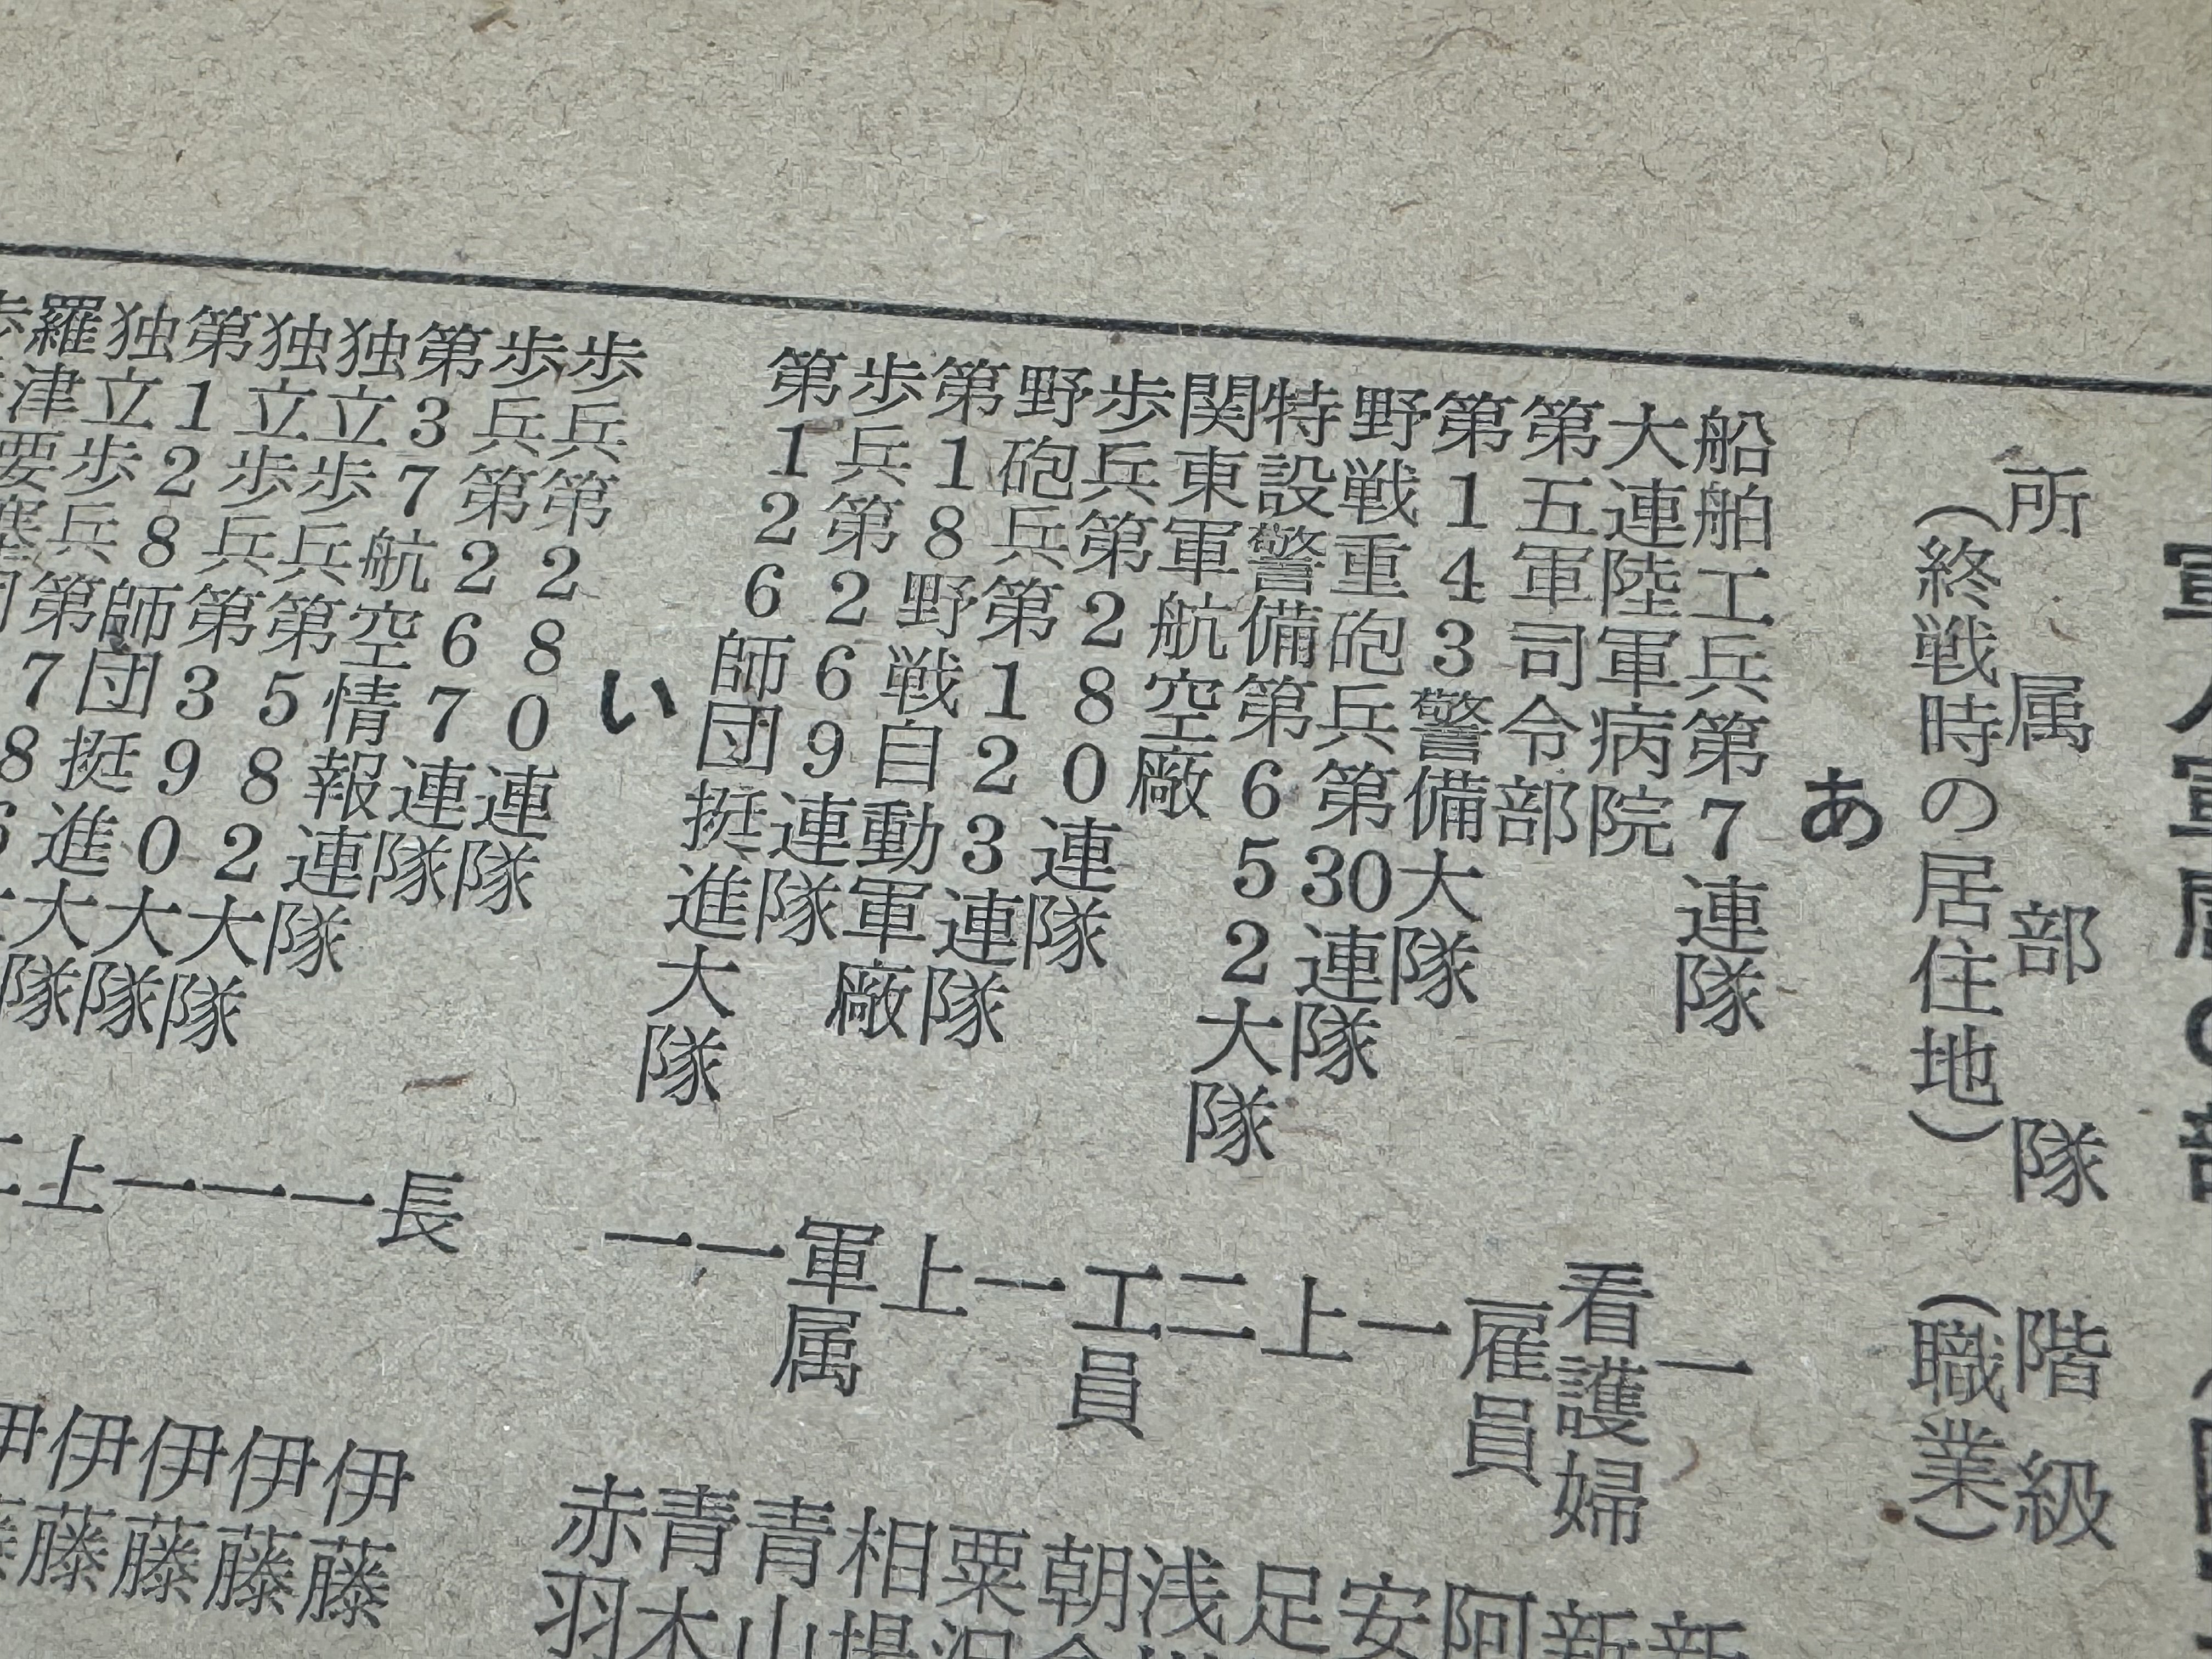 所属部隊 階級
(終戦時の居住地) (職業)
あ
船舶工兵第7連隊 一 新
大連陸軍病院 看護婦 新
第五軍司令部 雇員 阿
第143警備大隊 一 安
野戦重砲兵第30連隊 上 足
特設警備第652大隊 二 浅
関東軍航空廠 工員 朝
歩兵第280連隊 一 粟
野砲兵第123連隊 上 相
第18野戦自動軍廠 軍属 青山
歩兵第269連隊 一 青木
第126師団挺進大隊 一 赤羽
い
歩兵第280連隊 長 伊藤
歩兵第267連隊 一 伊藤
第37航空情報連隊 一 伊藤
独立歩兵第582大隊 一 伊藤
独立歩兵第390大隊 上
第128師団挺進大隊
独立歩兵第78
羅津要塞